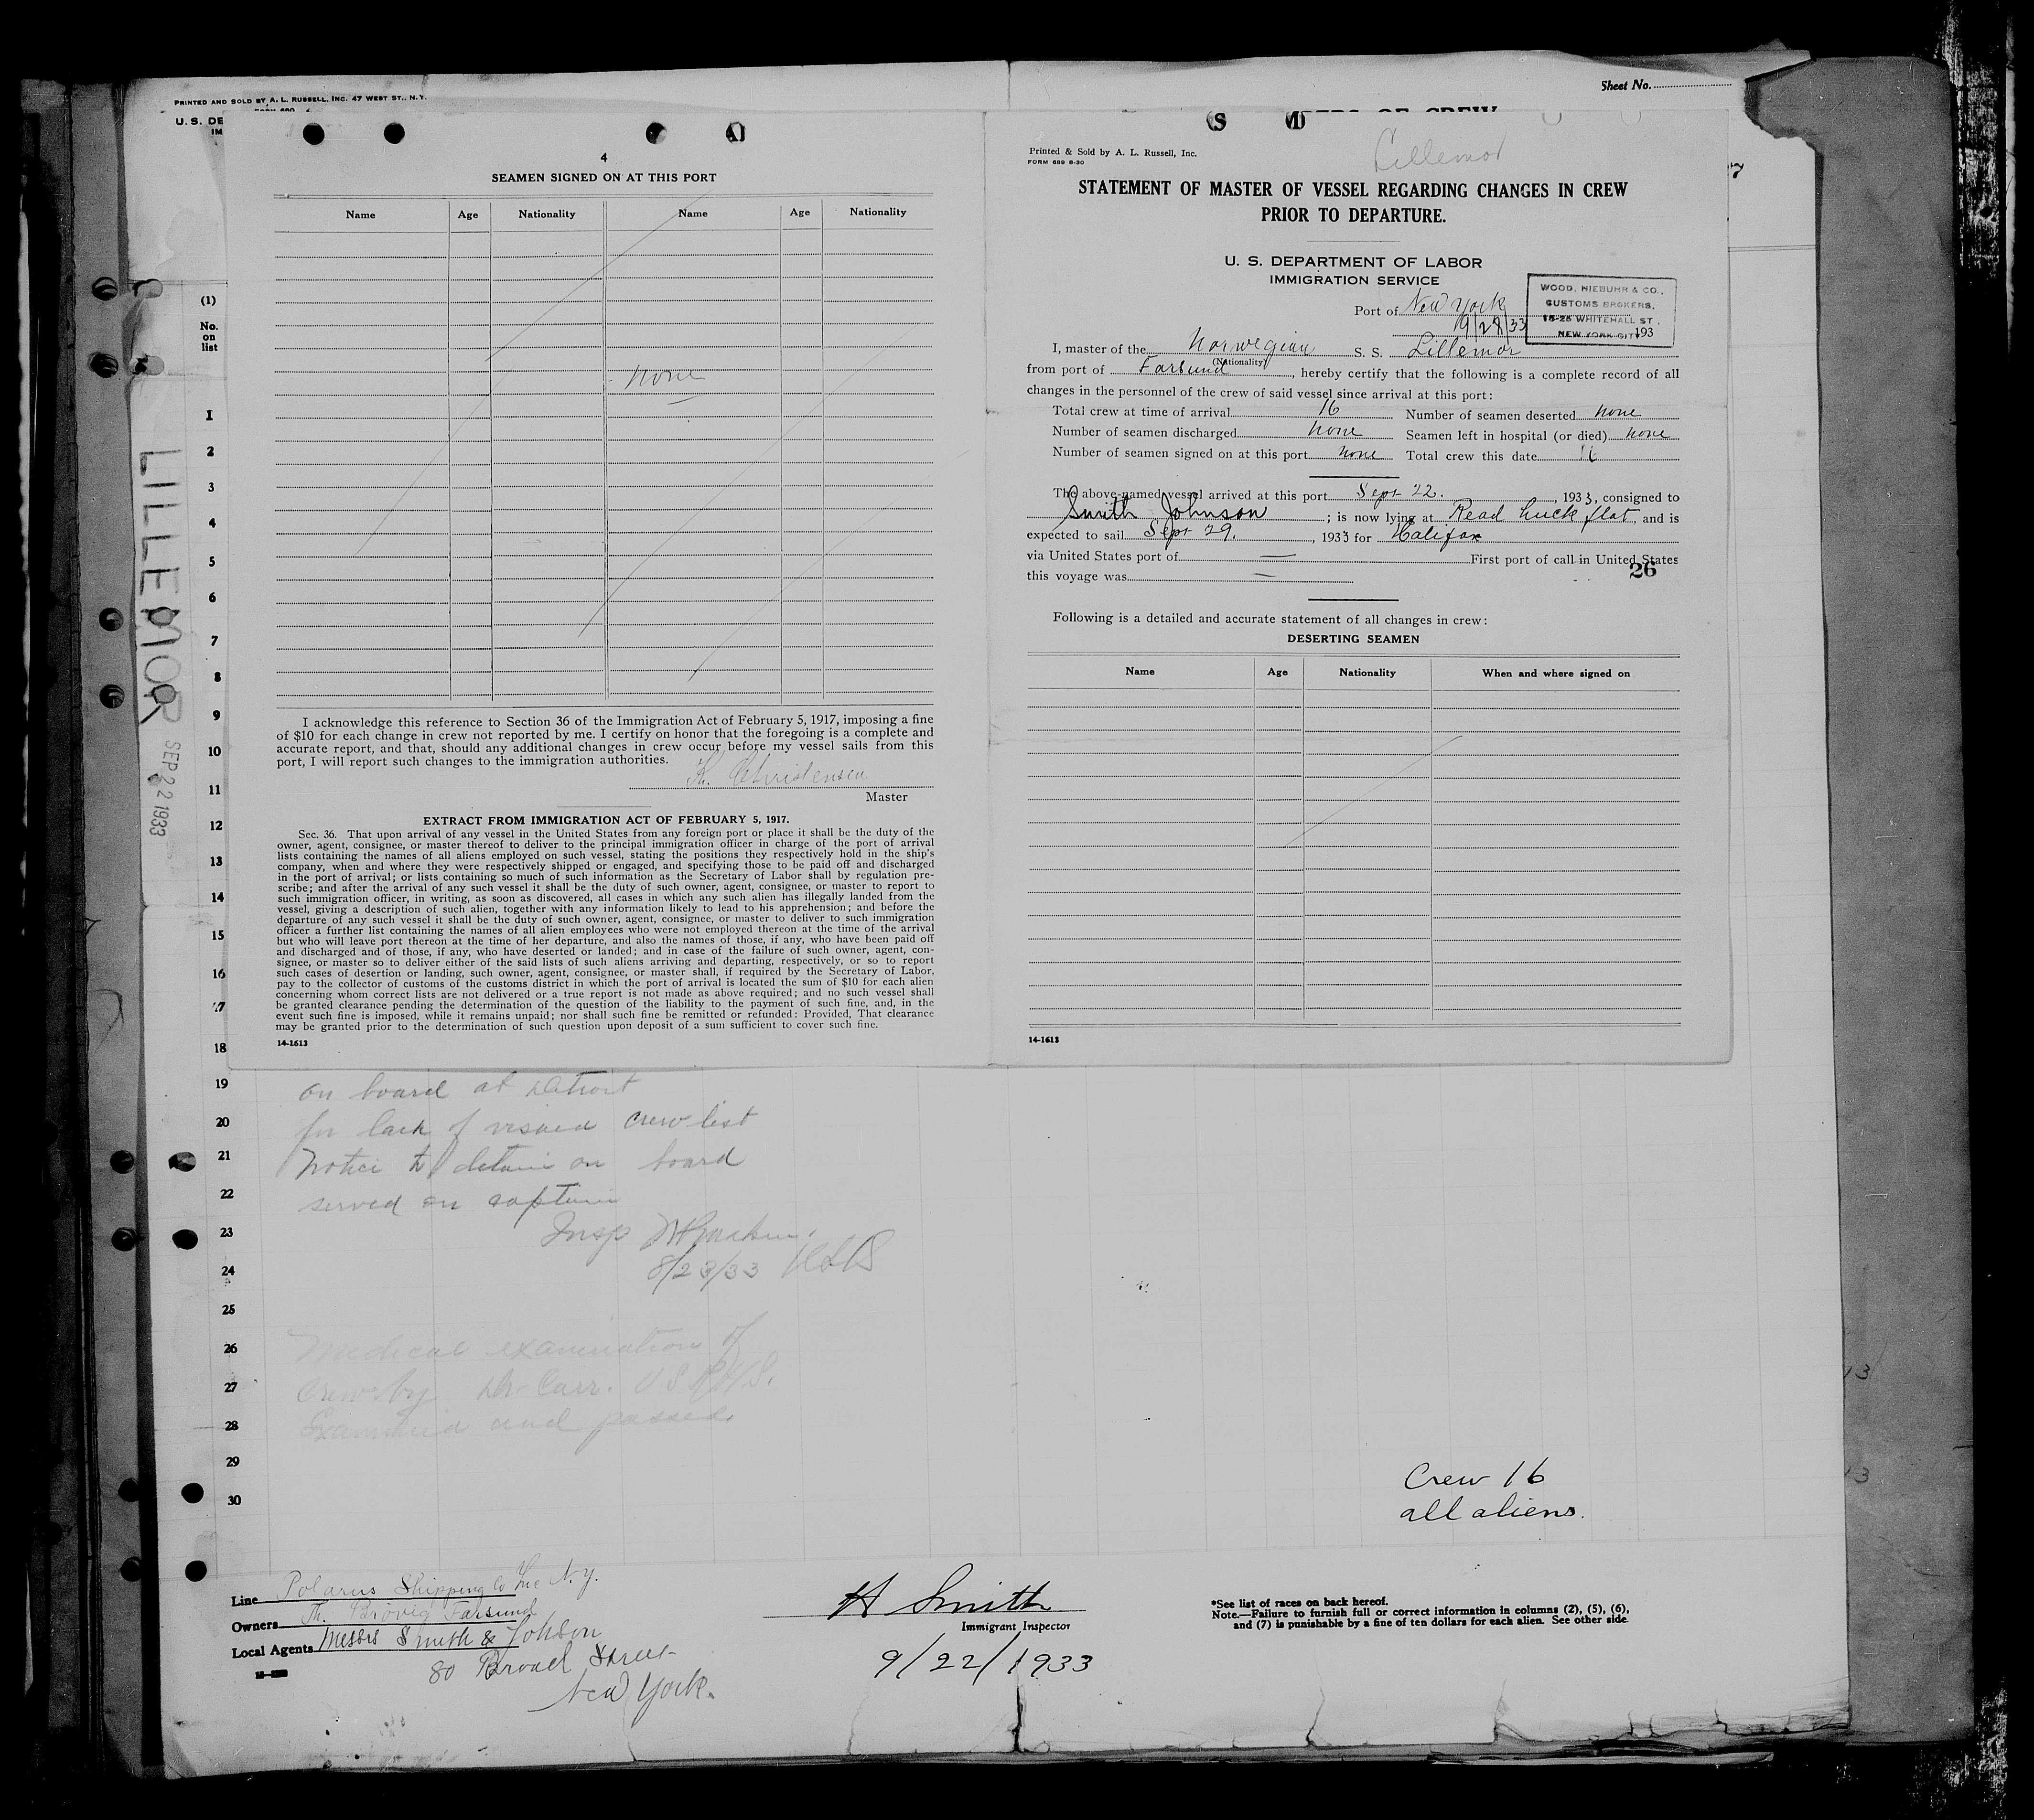 PRINTED AND SOLD BY A. L. RUSSELL, INC. 47 WEST ST., N.Y.
U. S. DE
IM
Sheet No.
(1)
No.
on
list
1
2
3
4
5
6
7
8
9
10
11
12
13
14
15
16
17
18
19
20
21
22
23
24
25
26
27
28
29
30
LILLEMOR
SEP 22 1933
4
SEAMEN SIGNED ON AT THIS PORT
Name Age Nationality Name Age Nationality
none
I acknowledge this reference to Section 36 of the Immigration Act of February 5, 1917, imposing a fine
of $10 for each change in crew not reported by me. I certify on honor that the foregoing is a complete and
accurate report, and that, should any additional changes in crew occur before my vessel sails from this
port, I will report such changes to the immigration authorities.
K. Christensen
Master
EXTRACT FROM IMMIGRATION ACT OF FEBRUARY 5, 1917.
Sec. 36. That upon arrival of any vessel in the United States from any foreign port or place it shall be the duty of the
owner, agent, consignee, or master thereof to deliver to the principal immigration officer in charge of the port of arrival
lists containing the names of all aliens employed on such vessel, stating the positions they respectively hold in the ship's
company, when and where they were respectively shipped or engaged, and specifying those to be paid off and discharged
in the port of arrival; or lists containing so much of such information as the Secretary of Labor shall by regulation pre-
scribe; and after the arrival of any such vessel it shall be the duty of such owner, agent, consignee, or master to report to
such immigration officer, in writing, as soon as discovered, all cases in which any such alien has illegally landed from the
vessel, giving a description of such alien, together with any information likely to lead to his apprehension; and before the
departure of any such vessel it shall be the duty of such owner, agent, consignee, or master to deliver to such immigration
officer a further list containing the names of all alien employees who were not employed thereon at the time of the arrival
but who will leave port thereon at the time of her departure, and also the names of those, if any, who have been paid off
and discharged and of those, if any, who have deserted or landed; and in case of the failure of such owner, agent, con-
signee, or master so to deliver either of the said lists of such aliens arriving and departing, respectively, or so to report
such cases of desertion or landing, such owner, agent, consignee, or master shall, if required by the Secretary of Labor,
pay to the collector of customs of the customs district in which the port of arrival is located the sum of $10 for each alien
concerning whom correct lists are not delivered or a true report is not made as above required; and no such vessel shall
be granted clearance pending the determination of the question of the liability to the payment of such fine, and, in the
event such fine is imposed, while it remains unpaid; nor shall such fine be remitted or refunded: Provided, That clearance
may be granted prior to the determination of such question upon deposit of a sum sufficient to cover such fine.
14-1613
Lillemor
Printed & Sold by A. L. Russell, Inc.
FORM 689 8-30
STATEMENT OF MASTER OF VESSEL REGARDING CHANGES IN CREW
PRIOR TO DEPARTURE.
U. S. DEPARTMENT OF LABOR
IMMIGRATION SERVICE
WOOD, NIEBUHR & CO.,
CUSTOMS BROKERS,
15-25 WHITEHALL ST.,
NEW YORK CITY
Port of New York
9/28/33 193
I, master of the Norwegian S. S. Lillemor
(Nationality)
from port of Farsund, hereby certify that the following is a complete record of all
changes in the personnel of the crew of said vessel since arrival at this port:
Total crew at time of arrival 16 Number of seamen deserted none
Number of seamen discharged none Seamen left in hospital (or died) none
Number of seamen signed on at this port none Total crew this date 16
The above-named vessel arrived at this port Sept 22, 1933, consigned to
Smith Johnson; is now lying at Read huck flat, and is
expected to sail Sept 29, 1933 for Halifax
via United States port of — First port of call in United States
this voyage was — 26
Following is a detailed and accurate statement of all changes in crew:
DESERTING SEAMEN
Name Age Nationality When and where signed on
14-1613
on board at Detroit
for lack of visaed crew list
Notice to detain on board
served on captain
Insp
8/23/33
Medical examination of
crew by Dr Carr. U S P H S.
Examined and passed.
Crew 16
all aliens.
Line Polarus Shipping Co Inc N.Y.
Owners Th. Brövig Farsund
Local Agents Messrs Smith & Johson
80 Broad Street
New York.
H Smith
Immigrant Inspector
9/22/1933
*See list of races on back hereof.
Note.—Failure to furnish full or correct information in columns (2), (5), (6),
and (7) is punishable by a fine of ten dollars for each alien. See other side.